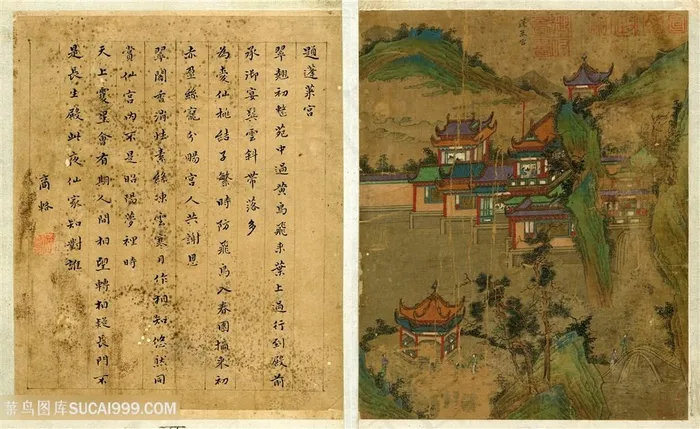 題蓬萊宮
翠翹初整苑中過黄鳥飛來葉上過行到殿前
承御宴異雲斜帶落多
為愛仙桃結子繁時防飛鳥入春園摘來初
赤盈絲寵分賜宮人共謝恩
翠閣香消
雲寒月作相知悠然同
賞仙宮內不是昭陽夢裡時
天上雙星會有期人間相望轉相疑長門不
是長生殿此夜仙家知對誰
商輅
蓬萊宮
菜鸟图库SUCAI999.COM